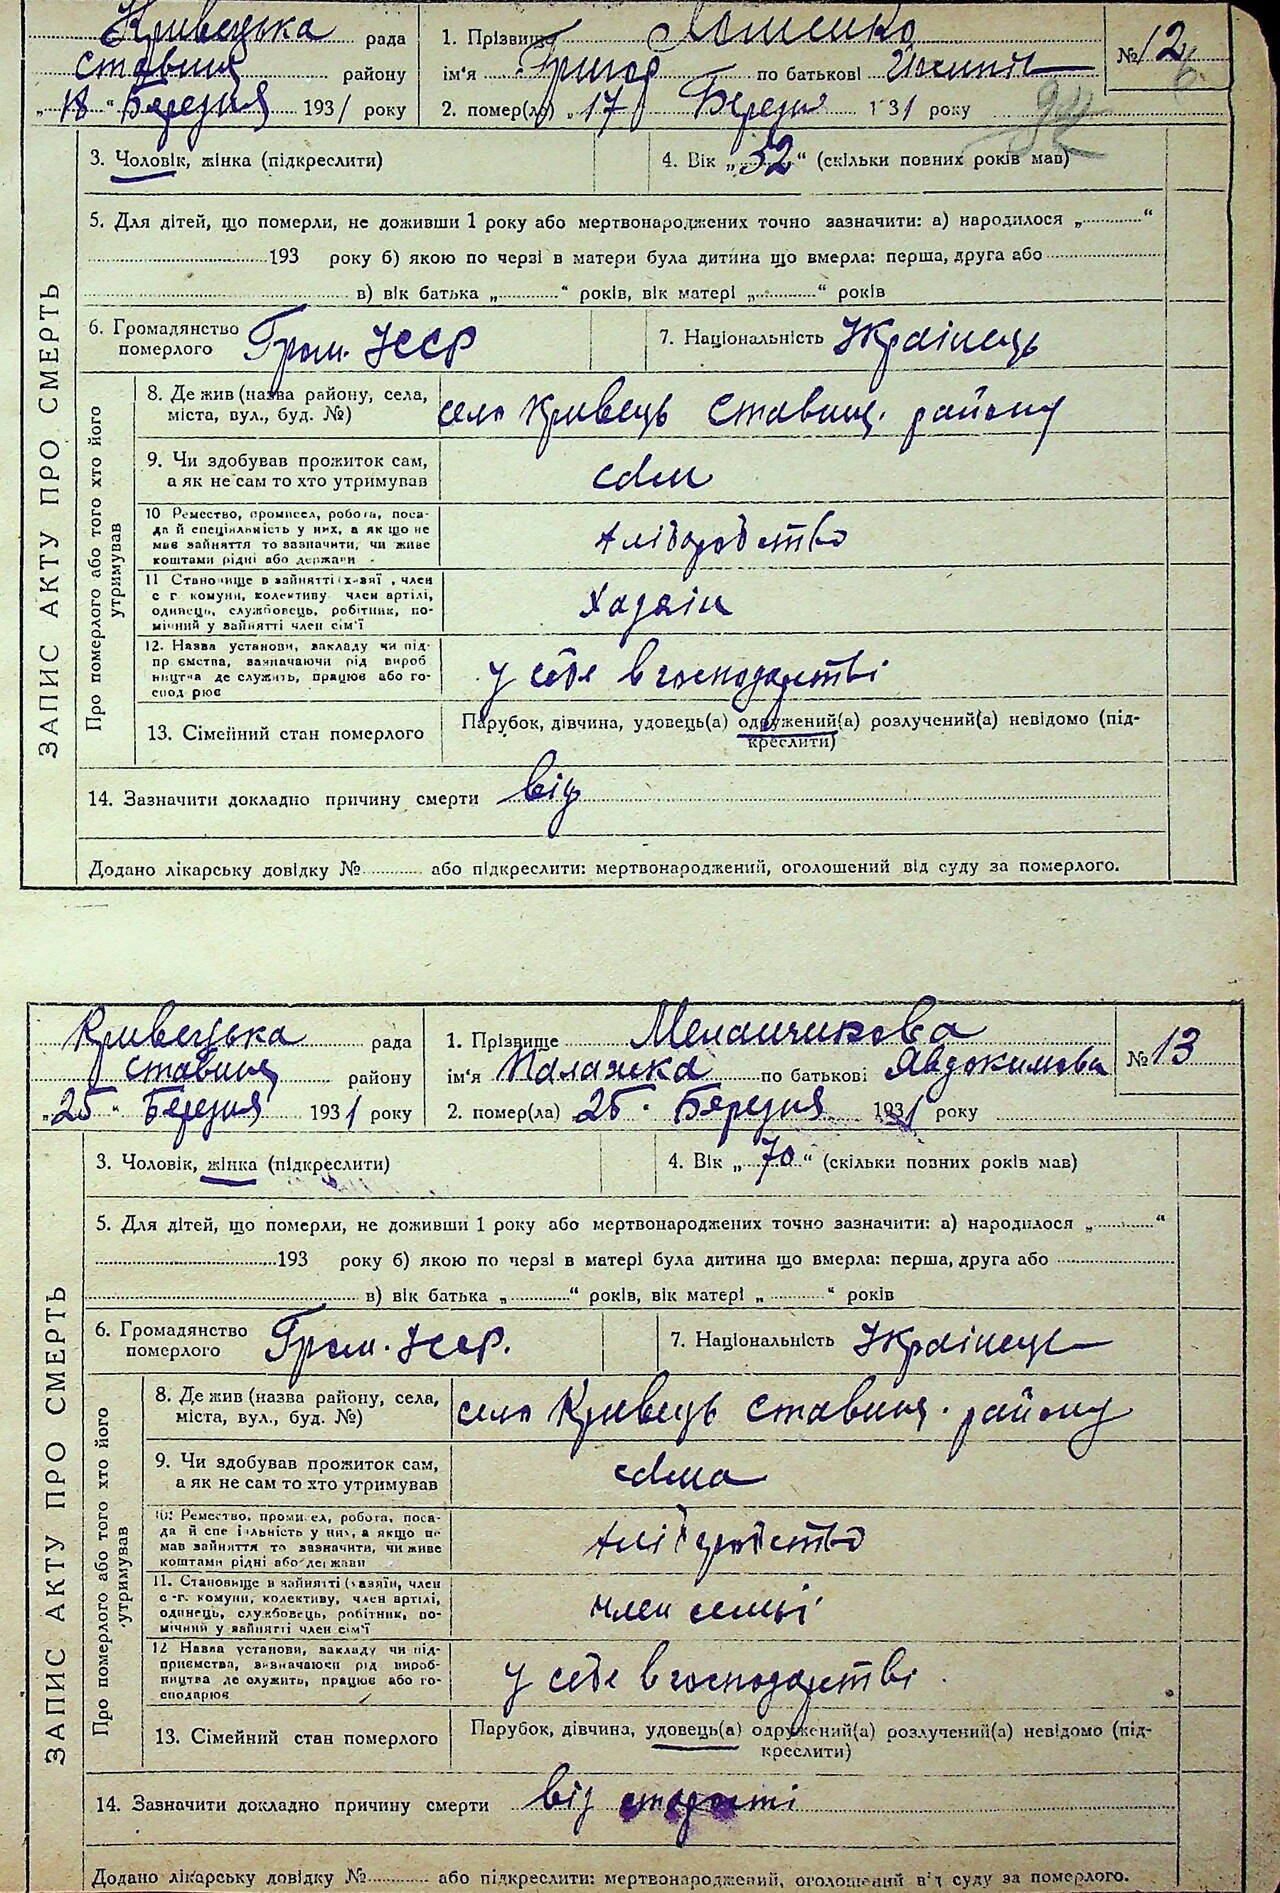 Кривецька рада
Ставищ району
„18“ Березня 1931 року
1. Прізвище
ім'я Григор по батькові
2. помер(ла) „17 Березня 1931 року
№ 12
3. Чоловік, жінка (підкреслити)
4. Вік „52“ (скільки повних років мав)
5. Для дітей, що померли, не доживши 1 року або мертвонароджених точно зазначити: а) народилося „ “
193 року б) якою по черзі в матери була дитина що вмерла: перша, друга або
в) вік батька „ “ років, вік матері „ “ років
ЗАПИС АКТУ ПРО СМЕРТЬ
6. Громадянство
померлого Гром. УССР
7. Національність Українець
Про померлого або того хто його
утримував
8. Де жив (назва району, села,
міста, вул., буд. №)
село Кривець Ставищ. району
9. Чи здобував прожиток сам,
а як не сам то хто утримував
сам
10 Ремество, промисел, робота, поса-
да й спеціяльність у них, а як що не
має зайняття то зазначити, чи живе
коштами рідні або держави
хліборобство
11 Становище в зайнятті член
с г комуни, колективу член артілі,
одинець, службовець, робітник, по-
мічний у зайнятті член сім'ї
хазяїн
12. Назва установи, закладу чи під-
пр ємства, зазначаючи рід вироб
ництва де служить, працює або го-
спод рює
у себе в господарстві
13. Сімейний стан померлого
Парубок, дівчина, удовець(а) одружений(а) розлучений(а) невідомо (під-
креслити)
14. Зазначити докладно причину смерти від
Додано лікарську довідку № або підкреслити: мертвонароджений, оголошений від суду за померлого.
Кривецька рада
Ставищ району
„25“ Березня 1931 року
1. Прізвище Меланчикова
ім'я Палажка по батькові Явдокимова
2. помер(ла) 25 Березня 1931 року
№ 13
3. Чоловік, жінка (підкреслити)
4. Вік „70“ (скільки повних років мав)
5. Для дітей, що померли, не доживши 1 року або мертвонароджених точно зазначити: а) народилося „ “
193 року б) якою по черзі в матері була дитина що вмерла: перша, друга або
в) вік батька „ “ років, вік матері „ “ років
ЗАПИС АКТУ ПРО СМЕРТЬ
6. Громадянство
померлого Гром. УССР.
7. Національність Українець
Про померлого або того хто його
утримував
8. Де жив (назва району, села,
міста, вул., буд. №)
село Кривець Ставищ. району
9. Чи здобував прожиток сам,
а як не сам то хто утримував
сама
10. Ремество, промисел, робота, поса-
да й спе іяльність у них, а якщо не
мав зайняття то зазначити, чи живе
коштами рідні або держави
хліборобство
11. Становище в зайнятті (хазяїн, член
с-г. комуни, колективу, член артілі,
одинець, службовець, робітник, по-
мічний у зайнятті член сім'ї
член семьі
12 Назва установи, закладу чи під-
приємства, визначаюси рід вироб-
ництва де служить, працює або го-
сподарює
у себе в господарстві
13. Сімейний стан померлого
Парубок, дівчина, удовець(а) одружений(а) розлучений(а) невідомо (під-
креслити)
14. Зазначити докладно причину смерти від старості
Додано лікарську довідку № або підкреслити: мертвонароджений, оголошений від суду за померлого.